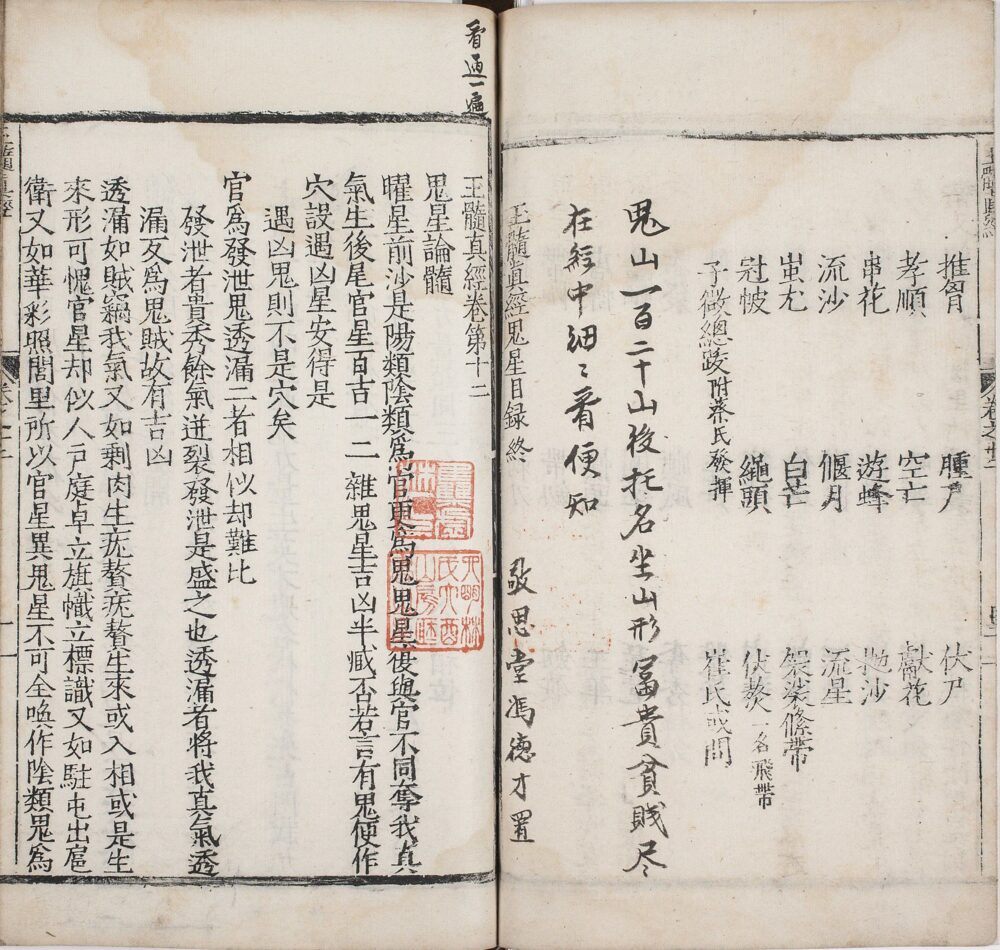 推胷 腫尸 伏尸
孝順 空亡 獻花
串花 遊蜂 抛沙
流沙 偃月 流星
蚩尤 白芒 袈裟絛帶
冠帔 繩頭 伏𤼵一名飛帶
子微總跋附蔡氏發揮 崔氏或問
鬼山一百二十山後托名坐山形冨貴貧賤尽
在經中細〻看便知
敬思堂馮德才置
玉髓真經鬼星目録終
看通一遍
玉髓真經卷第十二
鬼星論髓
曜星前沙是陽類陰類爲官更爲鬼鬼星復與官不同奪我真
氣生後尾官星百吉一二雜鬼星吉凶半臧否若言有鬼便作
穴設遇凶星安得是
遇凶鬼則不是穴矣
官爲發泄鬼透漏二者相似却難比
發泄者貴秀餘氣迸裂發泄是盛之也透漏者將我真氣透
漏反爲鬼賊故有吉凶
透漏如賊竊我氣又如剩肉生疣贅疣贅生來或入相或是生
來形可愧官星却似人戸庭卓立旗幟立標識又如駐屯出扈
衛又如華彩照閭里所以官星異鬼星不可全喚作陰類鬼爲